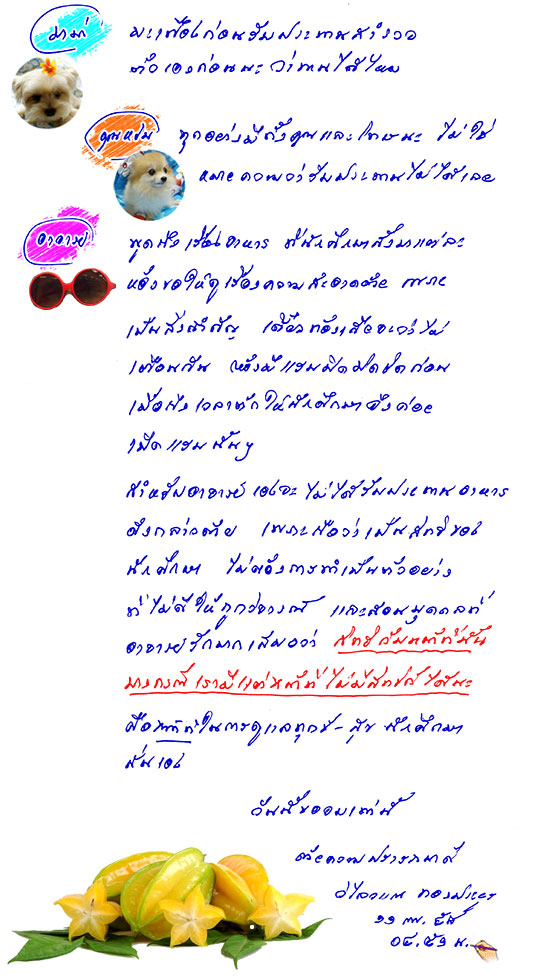 มาก่ มะเฟืองก่อนรับประทาน
ก่อนนะ ว่าทานได้ไหม
คุณหชม ทุกอย่างมีทั้งคุณและโทษนะ ไม่ใช่
หมายความว่ารับประทานไม่ได้เลย
อาจารย์ พูดถึงเรื่องอาหาร ที่นักศึกษาสั่งมาแต่ละ
ห้องขอให้ดูเรื่องความสะอาดด้วย เพราะ
เป็นสิ่งสำคัญ เดี๋ยวท้องเสียจะว่าไม่
เตือนกัน ห้องมีแขมมิดมิดชิดก่อน
เมื่อถึงเวลาพักให้นักศึกษาจึงค่อย
เปิดแขมนั้นๆ
สำหรับอาจารย์เองจะไม่ได้รับประทานอาหาร
ดังกล่าวด้วย เพราะถือว่าเป็นสิทธิของ
นักศึกษา ไม่ต้องการทำเป็นตัวอย่าง
ที่ไม่ดีให้ถูกวิจารณ์ และสอนบุคคลที่
อาจารย์รักมากเสมอว่า สิทธิกับหน้าที่นั้น
บางกรณีเรามีแต่หน้าที่ ไม่มีสิทธิก็ได้นะ
คือหน้าที่ในการดูแลทุกข์-สุข นักศึกษา
นั่นเอง
วันนี้ขอจบเท่านี้
ด้วยความปรารถนาดี
วิไลวรรณ
๑๑ พ.
๐๔.๕๑ น.